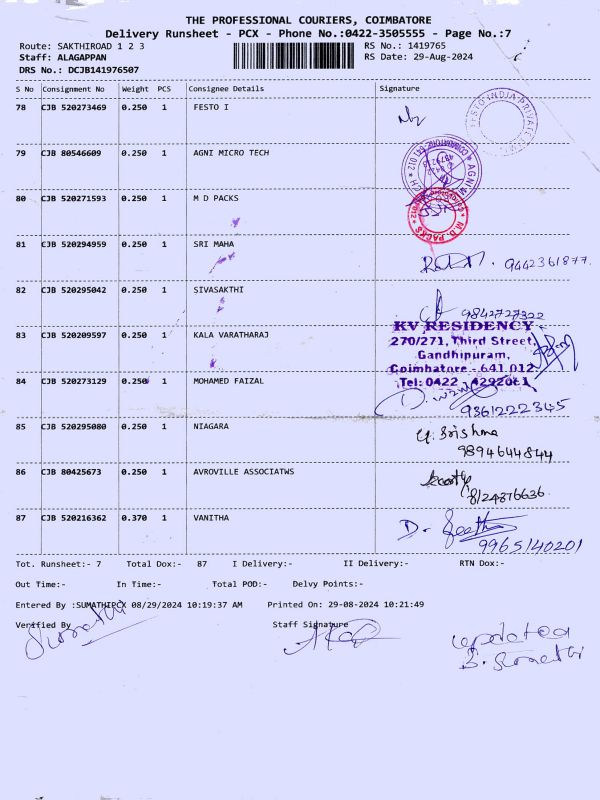 THE PROFESSIONAL COURIERS, COIMBATORE
Delivery Runsheet - PCX - Phone No.:0422-3505555 - Page No.:7
Route: SAKTHIROAD 1 2 3 RS No.: 1419765
Staff: ALAGAPPAN RS Date: 29-Aug-2024
DRS No.: DCJB141976507
S No Consignment No Weight PCS Consignee Details Signature
78 CJB 520273469 0.250 1 FESTO I
79 CJB 80546609 0.250 1 AGNI MICRO TECH
80 CJB 520271593 0.250 1 M D PACKS
M.D. PACKS
81 CJB 520294959 0.250 1 SRI MAHA
9442361877.
82 CJB 520295042 0.250 1 SIVASAKTHI
9842727322
83 CJB 520209597 0.250 1 KALA VARATHARAJ
KV RESIDENCY
270/271, Third Street,
Gandhipuram,
Coimbatore - 641 012
Tel: 0422 - 4292061
84 CJB 520273129 0.250 1 MOHAMED FAIZAL
9361222345
85 CJB 520295080 0.250 1 NIAGARA
9894644844
86 CJB 80425673 0.250 1 AVROVILLE ASSOCIATWS
8124876636
87 CJB 520216362 0.370 1 VANITHA
9965140201
Tot. Runsheet:- 7 Total Dox:- 87 I Delivery:- II Delivery:- RTN Dox:-
Out Time:- In Time:- Total POD:- Delvy Points:-
Entered By :SUMATHIPCX 08/29/2024 10:19:37 AM Printed On: 29-08-2024 10:21:49
Verified By Staff Signature
updated